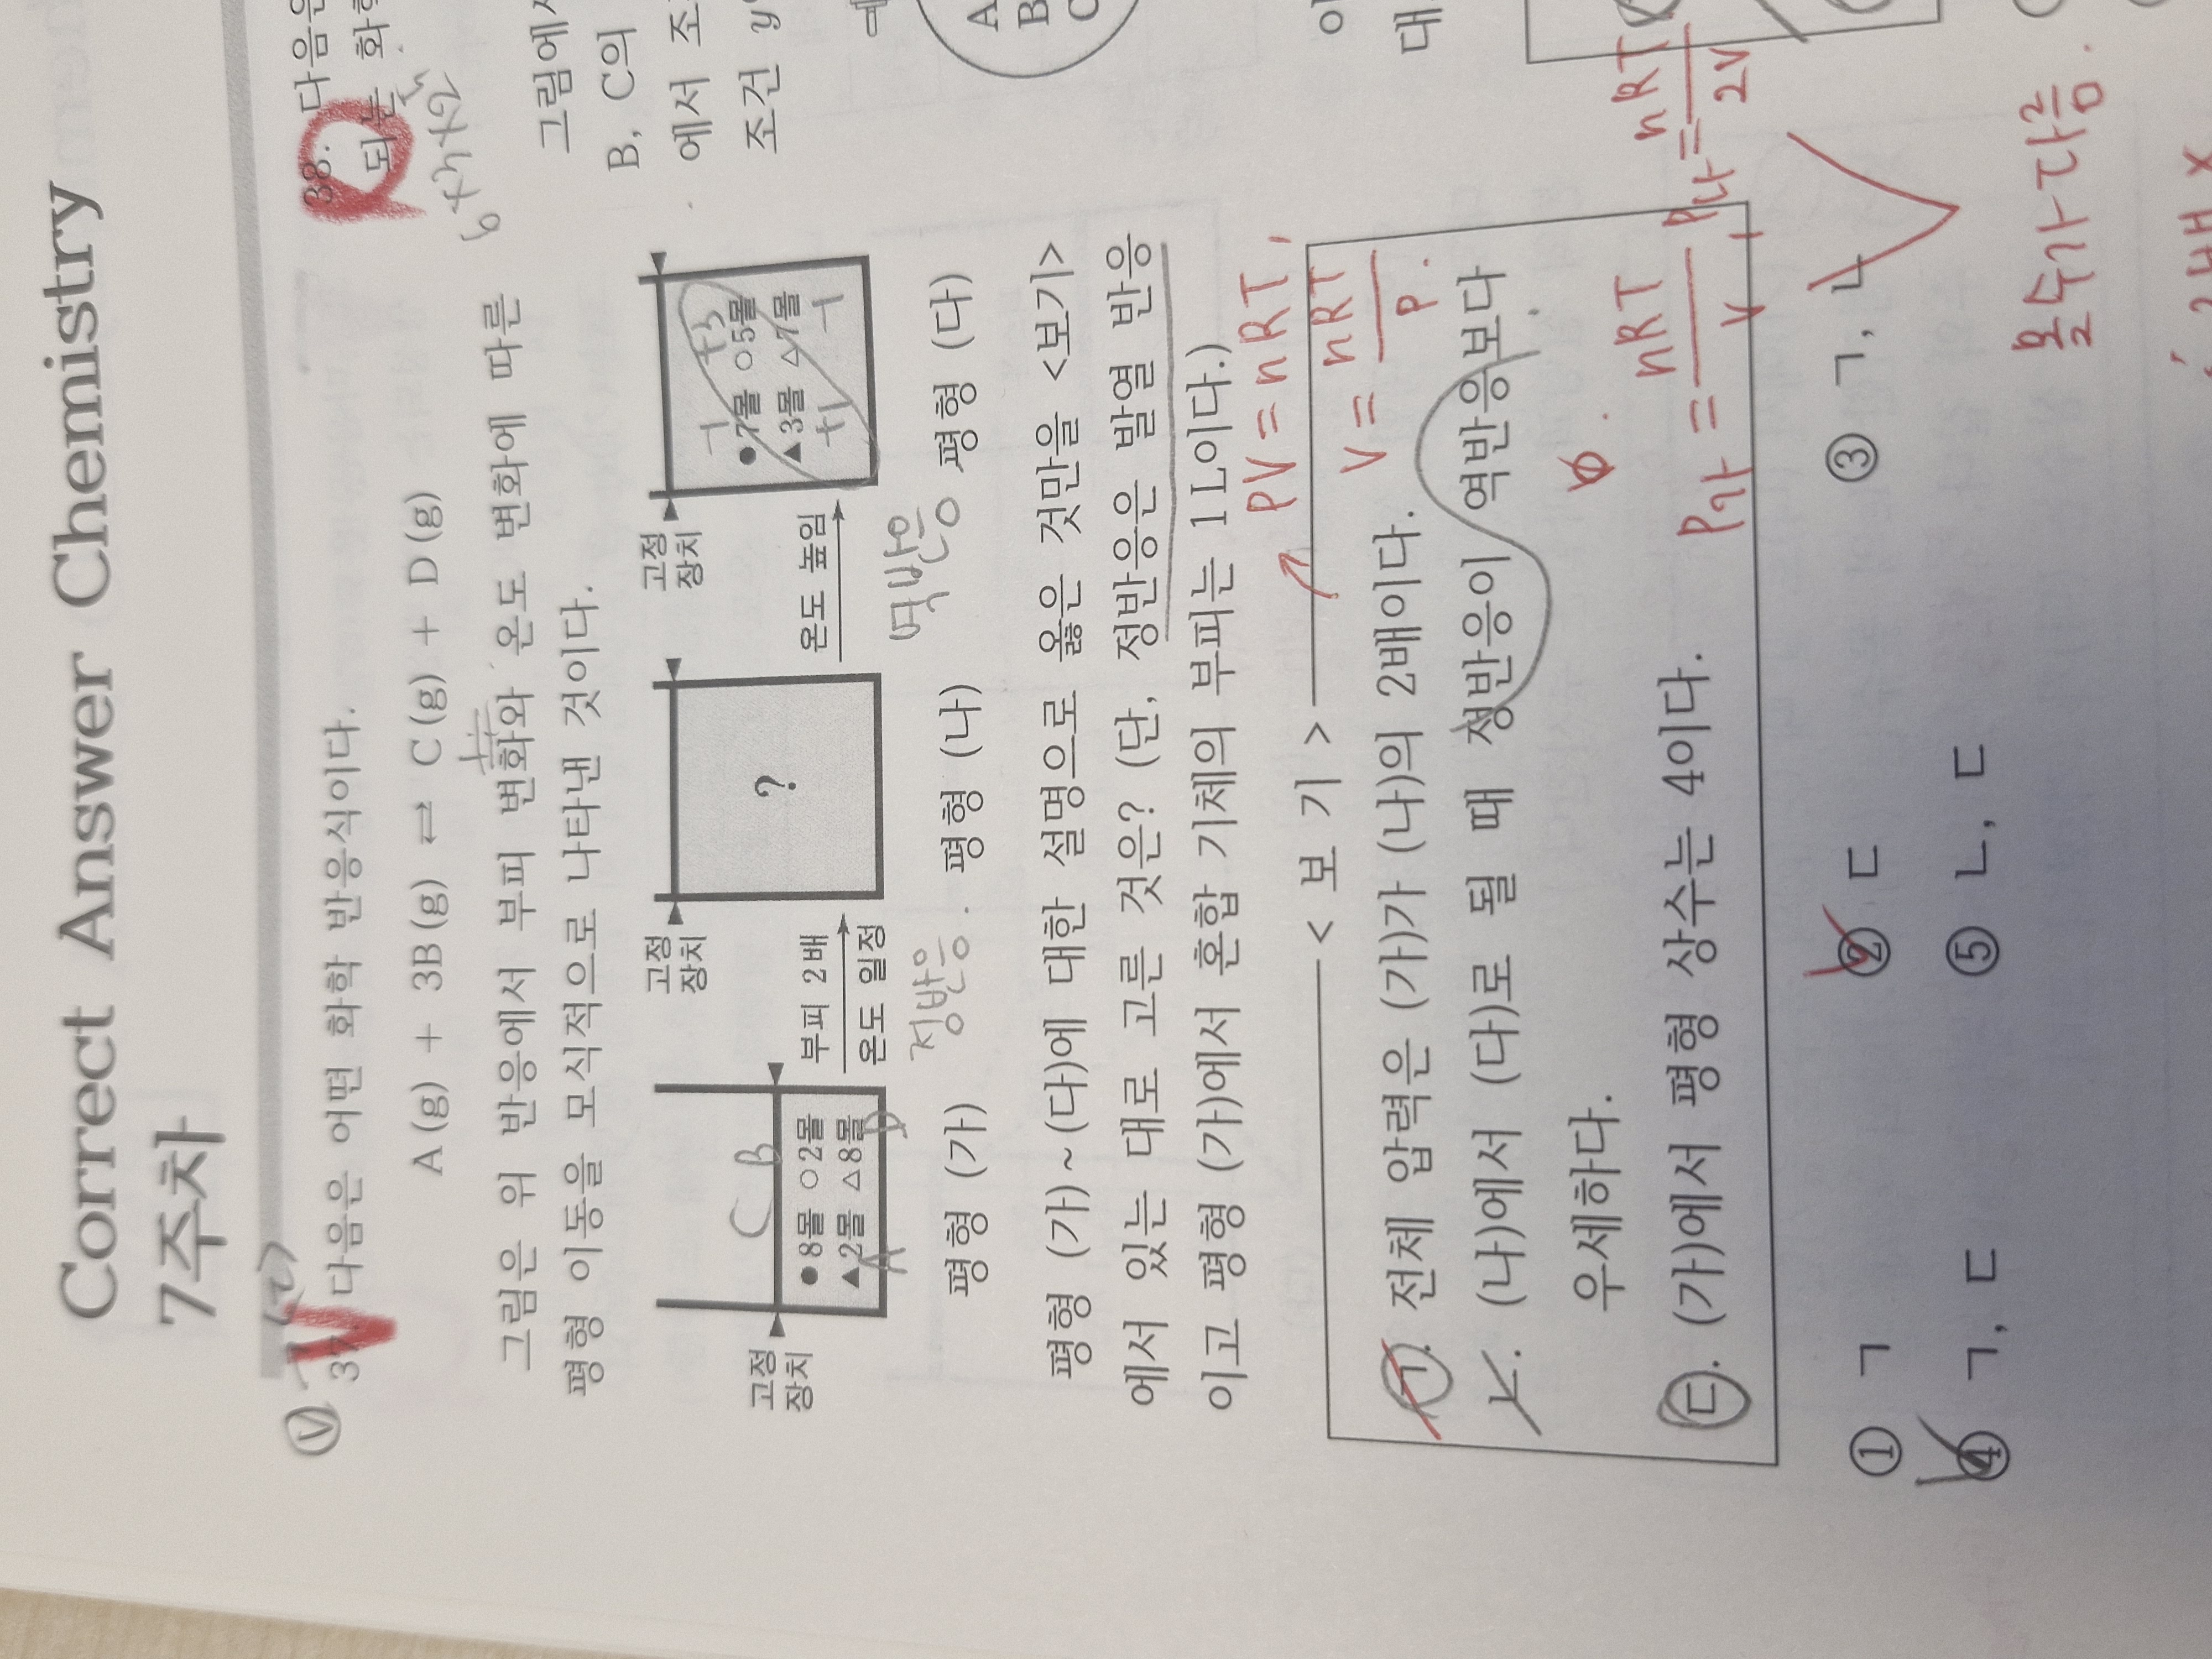 Correct Answer Chemistry
7주차
37. 다음은 어떤 화학 반응식이다.
A(g) + 3B(g) ⇌ C(g) + D(g)
그림은 위 반응에서 부피 변화와 온도 변화에 따른
평형 이동을 모식적으로 나타낸 것이다.
고정
장치
C B
●8몰 ○2몰
▲2몰 △8몰
A D
평형 (가)
부피 2배
온도 일정
정반응.
고정
장치
?
평형 (나)
온도 높임
역반응
고정
장치
-1 +3
●7몰 ○5몰
▲3몰 △7몰
+1 -1
평형 (다)
평형 (가)~(다)에 대한 설명으로 옳은 것만을 <보기>
에서 있는 대로 고른 것은? (단, 정반응은 발열 반응
이고 평형 (가)에서 혼합 기체의 부피는 1L이다.)
PV = nRT,
V = nRT
P.
< 보 기 >
ㄱ. 전체 압력은 (가)가 (나)의 2배이다.
ㄴ. (나)에서 (다)로 될 때 정반응이 역반응보다
우세하다.
ㄷ. (가)에서 평형 상수는 4이다.
P가 = nRT
V
P나 = nRT
2V
① ㄱ
② ㄷ
③ ㄱ, ㄴ
④ ㄱ, ㄷ
⑤ ㄴ, ㄷ
몰수가 다름.
2배 X
38. 다음은
되는 화학
그림에서
B, C의
에서 조
조건 y
A
B
C
이
대